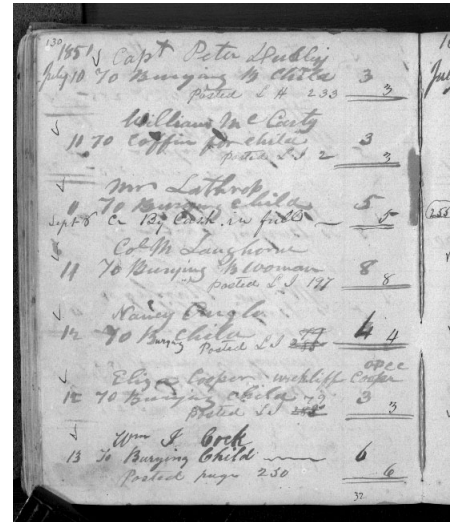 130
1851 Capt Peter Dudley
July 10 To Burying B Child 3
Posted L H 233 3
William McCarty
11 To Coffin for child 3
Posted L I 2 3
Mrs Lathrop
11 To Burying Child 5
Sept 8 Cr By Cash in full 5
Col M Langhorne
11 To Burying B Woman 8
Posted L I 197 8
Nancy
12 To Burying Child 4
Posted L I 4
Eliza Cooper Cooper
12 To Burying Child 3
Posted L I 3
Wm J Cock
13 To Burying Child 6
Posted page 250 6
37
Jul
255